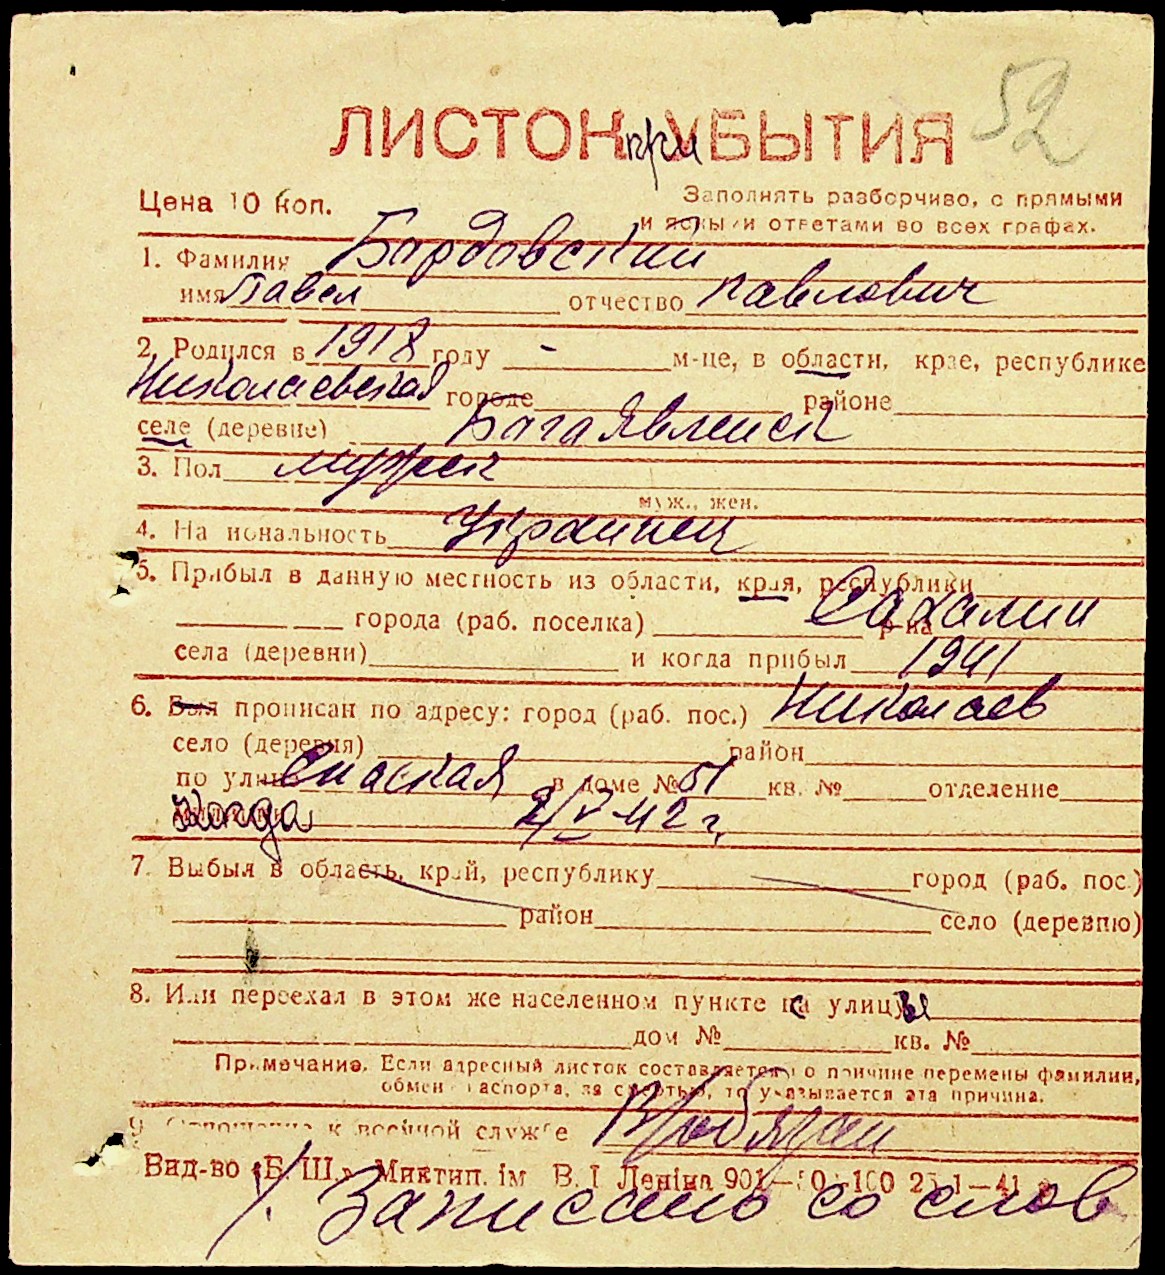 52
ЛИСТОК приУБЫТИЯ
Цена 10 коп.
Заполнять разборчиво, с прямыми
и ясными ответами во всех графах.
1. Фамилия Бордовский
имя Павел отчество Павлович
2. Родился в 1918 году - м-це, в области, крае, республике
Николаевская городе районе
селе (деревне) Богаявленск
3. Пол мужск
муж., жен.
4. Национальность Украинец
5. Прибыл в данную местность из области, края, республики
города (раб. поселка) р-на Сахалин
села (деревни) и когда прибыл 1941
6. Был прописан по адресу: город (раб. пос.) Николаев
село (деревня) район
по улице Спаская в доме № 51 кв. № отделение
когда 2/V-42 г.
7. Выбыл в область, край, республику город (раб. пос.)
район село (деревню)
8. Или переехал в этом же населенном пункте с улицы
дом № кв. №
Примечание. Если адресный листок составляется по причине перемены фамилии,
обмена паспорта, за смертью, то указывается эта причина.
9. Отношение к военной службе В/обязан
Вид-во «Б. Ш.» Миктип. ім В. І. Леніна 901—50×100 25-1—41
Записано со слов